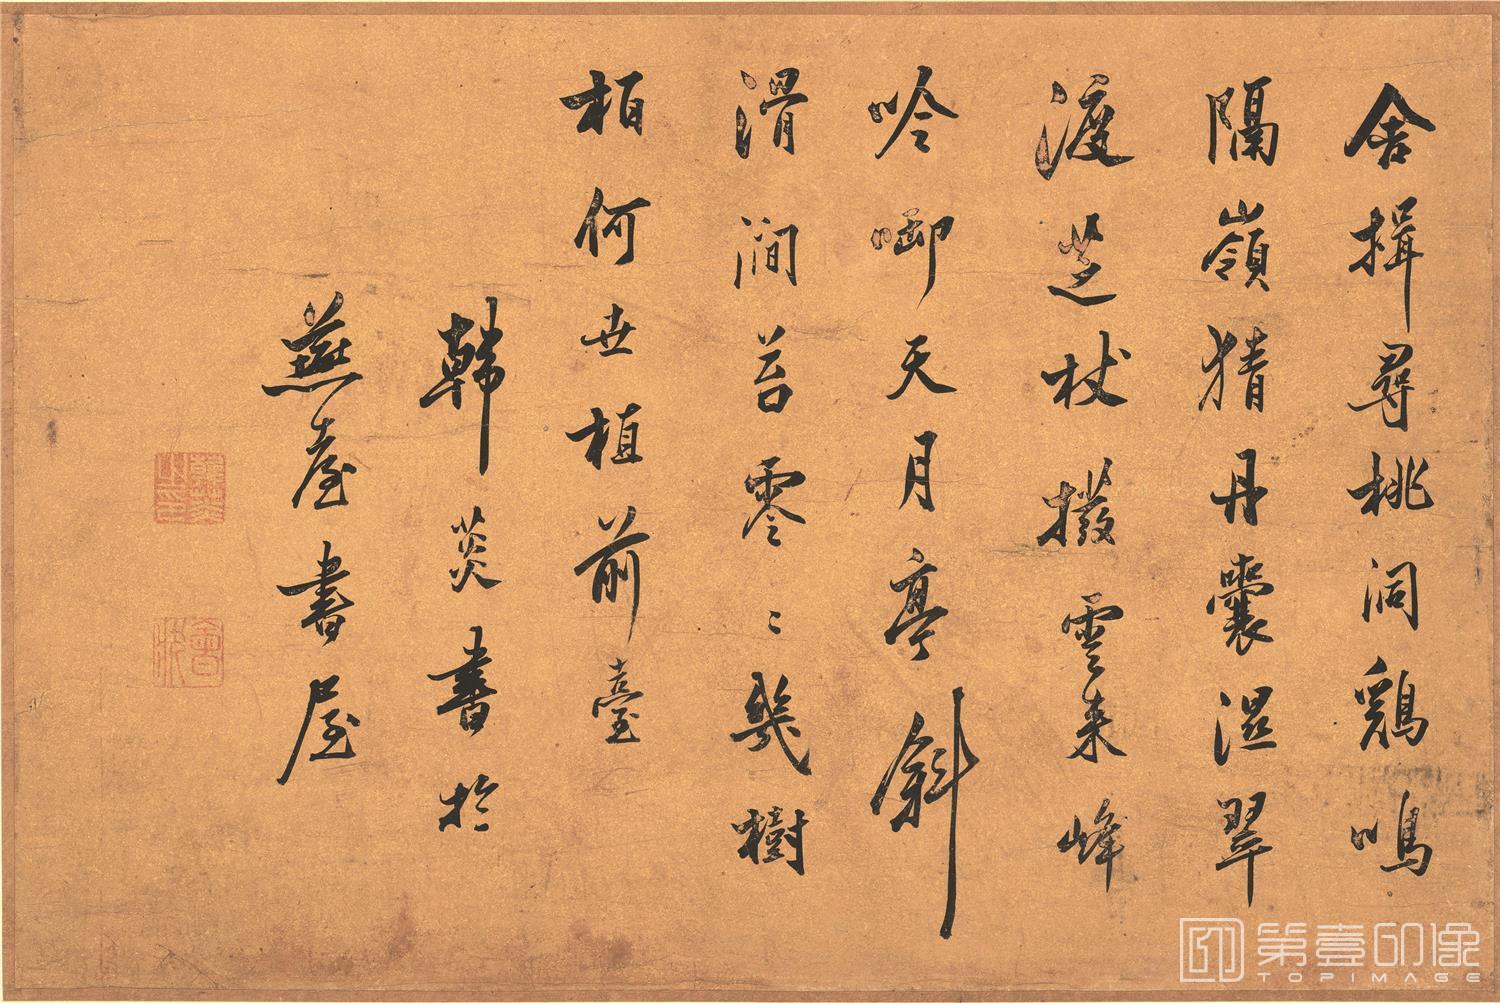 舍揖尋桃洞鷄鳴
隔嶺猜丹囊濕翠
渡芝杖撥雲来峰
吟啣天月亭斜
滑澗苔零〻幾樹
柏何世植前臺
韓菼書於
燕臺書屋
第壹印像
TOPIMAGE